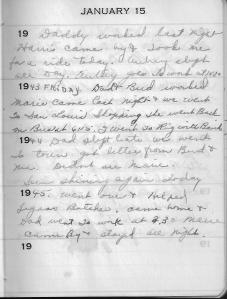 JANUARY 15
19 Daddy worked last night
Harris came by & took me
for a ride today. Aubrey slept
all day. Aubrey goes to work at
1943 FRIDAY. Dad & Bud worked
Marie came last night & we went
to San Louis Shopping she went Back
on Bus at 6:15. I went to Rig with Bud
1944 Dad slept late we went
to town. got letter from Bud &
me. Didn't see Marie.
Sun shining again today
1945. went over & Helped
came home &
Dad went to work at 8:30 Marie
came By & stayed all night.
19